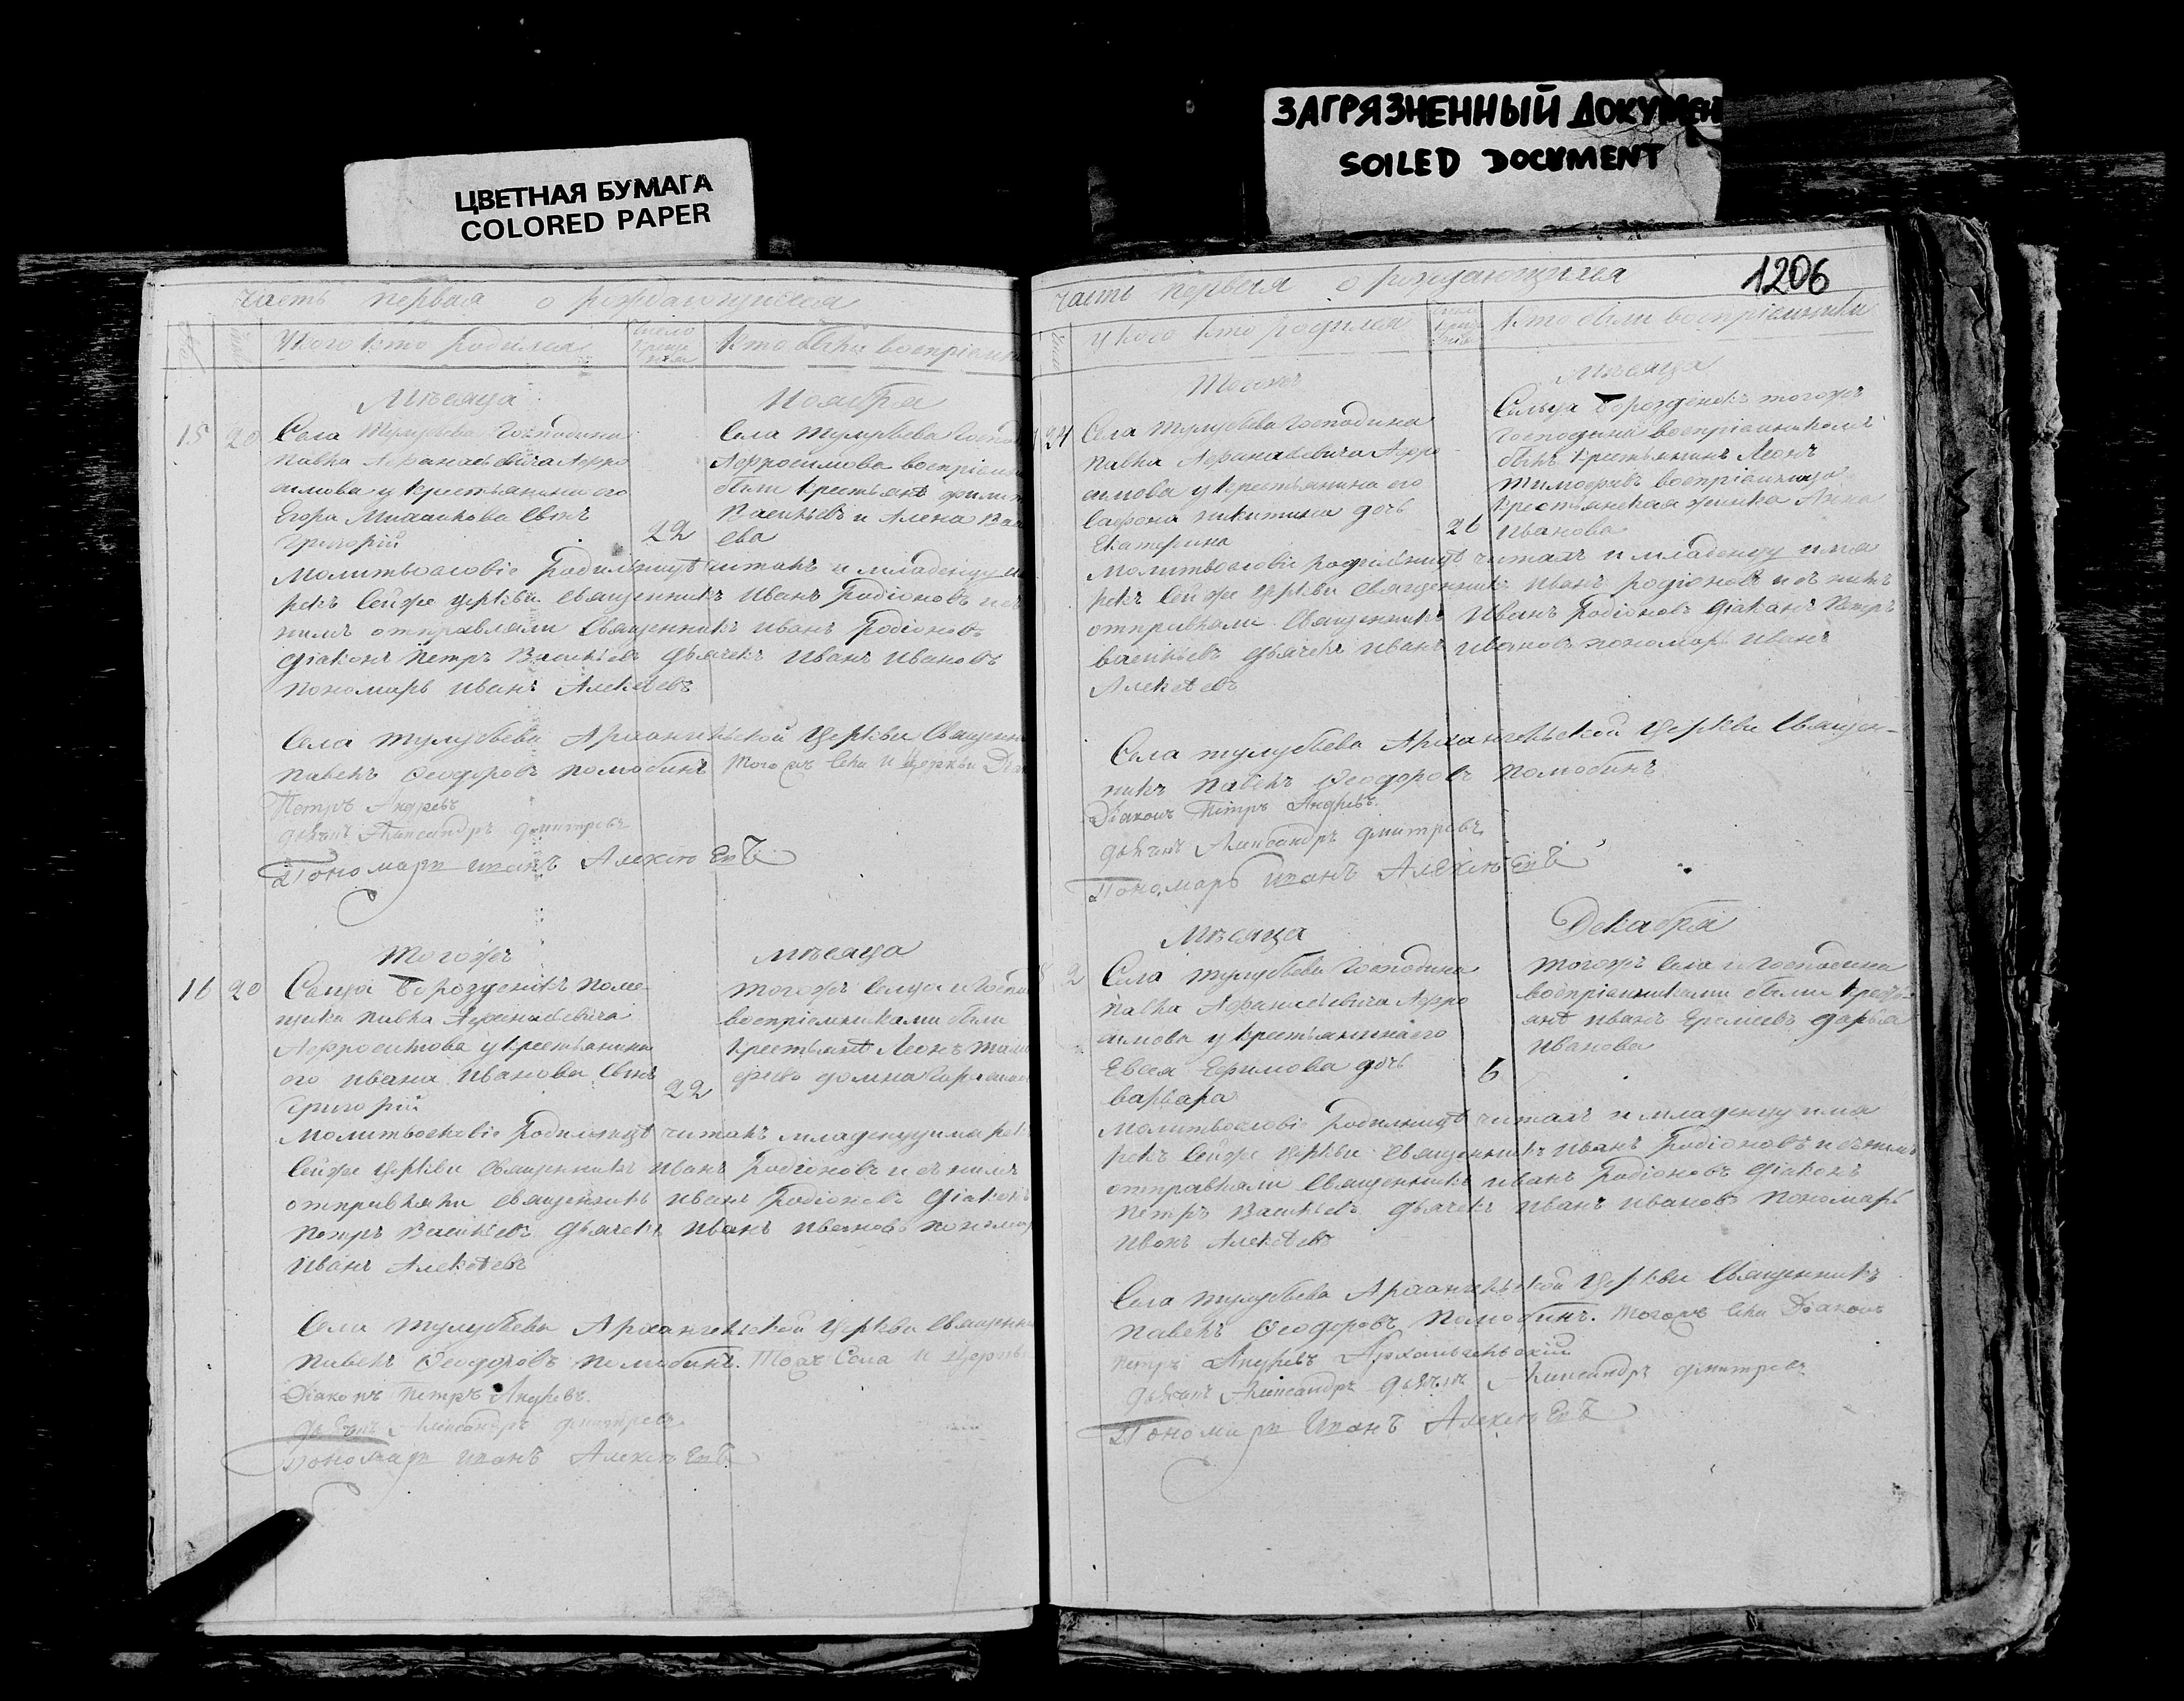 ЦВЕТНАЯ БУМАГА
COLORED PAPER
ЗАГРЯЗНЕННЫЙ ДОКУМЕН
SOILED DOCUMENT
часть первая о рождающихся
У кого кто родился
Число креще ния
Кто были воспріемн
Мѣсяца Ноября
15 20 Села Тулубьева Господина
Павла Афанасьевича Афро
симова у крестьянина его
Егора сынъ
Григорій 22
Села Тулубьева Госпо
Афросимова воспріем
были крестьянѣ Филип
Васильевъ и Алена Ва
ева
Молитвословіе родильницѣ читалъ и младенцу и
рекъ сей же церкви священникъ Иванъ Родіоновъ и съ
нимъ отправляли священникъ Иванъ Родіоновъ
діаконъ Петръ Васильевъ дьячекъ Иванъ Ивановъ
пономарь Иванъ Алексѣевъ
Села Тулубьева Архангельской церкви священн
Павелъ Ѳеодоровъ Полюбинъ Того жъ села и церкви Діа
Петръ Андревъ
дьячекъ Александръ Дмитревъ
Пономарь Иванъ Алексѣевъ
Того жъ мѣсяца
16 20 Сельца Борозденокъ поме-
щика Павла Афанасьевича
Афросимова у крестьянина
его Ивана Иванова сынъ
Григорій 22
того жъ сельца и госпо
воспріемниками были
крестьянѣ Леонъ Тимо
феевъ Домна
Молитвословіе родильницѣ читалъ младенцу имя рек
сей же церкви священникъ Иванъ Родіоновъ и съ нимъ
отправляли священникъ Иванъ Родіоновъ діаконъ
Петръ Васильевъ дьячекъ Иванъ Ивановъ пономар
Иванъ Алексѣевъ
Села Тулубьева Архангельской церкви священни
Павелъ Ѳеодоровъ Полюбинъ. Тогжъ Села и церкви
Діаконъ Петръ Андревъ.
дьячекъ Александръ Дмитревъ
Пономарь Иванъ Алексѣевъ
1206
часть первая о рождающихся
у кого кто родился
Кто были воспріемники
Того жъ Мѣсяца
24 Села Тулубьева Господина
Павла Афанасьевича Афро
симова у крестьянина его
Сафона Никитина дочь
Екатерина 26
Сельца Борозденокъ того жъ
господина воспріемникомъ
былъ крестьянинъ Леонъ
Тимофеевъ воспріемница
крестьянская жинка Анна
Иванова
Молитвословіе родильницѣ читалъ и младенцу имя
рекъ сей же церкви священникъ Иванъ Родіоновъ и съ нимъ
отправляли священникъ Иванъ Родіоновъ діаконъ Петръ
Васильевъ дьячекъ Иванъ Ивановъ пономарь Иванъ
Алексѣевъ
Села Тулубьева Архангельской церкви священ-
никъ Павелъ Ѳеодоровъ Полюбинъ
Діаконъ Петръ Андревъ.
дьячекъ Александръ Дмитревъ
Пономарь Иванъ Алексѣевъ
Мѣсяца Декабря
2 Села Тулубьева Господина
Павла Афанасьевича Афро
симова у крестьянина его
Евсея Ефимова дочь
Варвара 6
того жъ села и господина
воспріемниками были кресть-
янѣ Иванъ Еремеевъ Дарья
Иванова
Молитвословіе родильницѣ читалъ и младенцу имя
рекъ сей же церкви священникъ Иванъ Родіоновъ и съ нимъ
отправляли священникъ Иванъ Родіоновъ діаконъ
Петръ Васильевъ дьячекъ Иванъ Ивановъ пономарь
Иванъ Алексѣевъ
Села Тулубьева Архангельской церкви священникъ
Павелъ Ѳеодоровъ Полюбинъ. Тогожъ села Діаконъ
Петръ Андревъ Архангельскій
дьячекъ Александръ дьячекъ Александръ Дмитревъ
Пономарь Иванъ Алексѣевъ